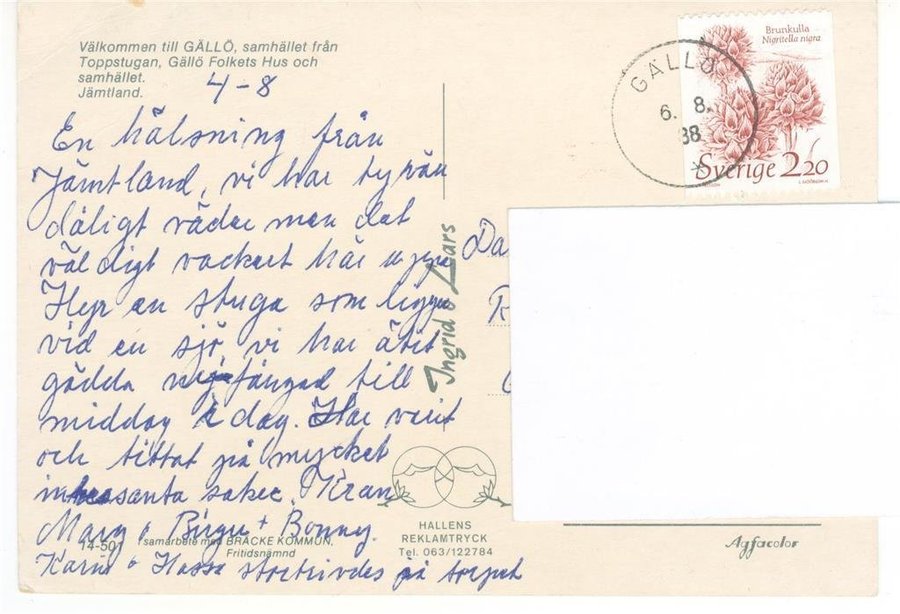 Välkommen till GÄLLÖ, samhället från
Toppstugan, Gällö Folkets Hus och
samhället.
Jämtland.
4-8
En hälsning från
Jämtland, vi har tyvärr
dåligt väder men det
väldigt vackert här uppe
Hyr en stuga som ligger
vid en sjö, vi har ätit
gädda nyfångad till
middag i dag. Har varit
och tittat på mycket
intressanta saker. Kram
Marg o Birger + Bonny.
Karin o Hasse stortrivdes på torpet
Ingrid o Lars
GÄLLÖ
6. 8.
88
Brunkulla
Nigritella nigra
Sverige 2.20
Da
R
HALLENS
REKLAMTRYCK
Tel. 063/122784
14-501
I samarbete med BRÄCKE KOMMUN,
Fritidsnämnd
Agfacolor